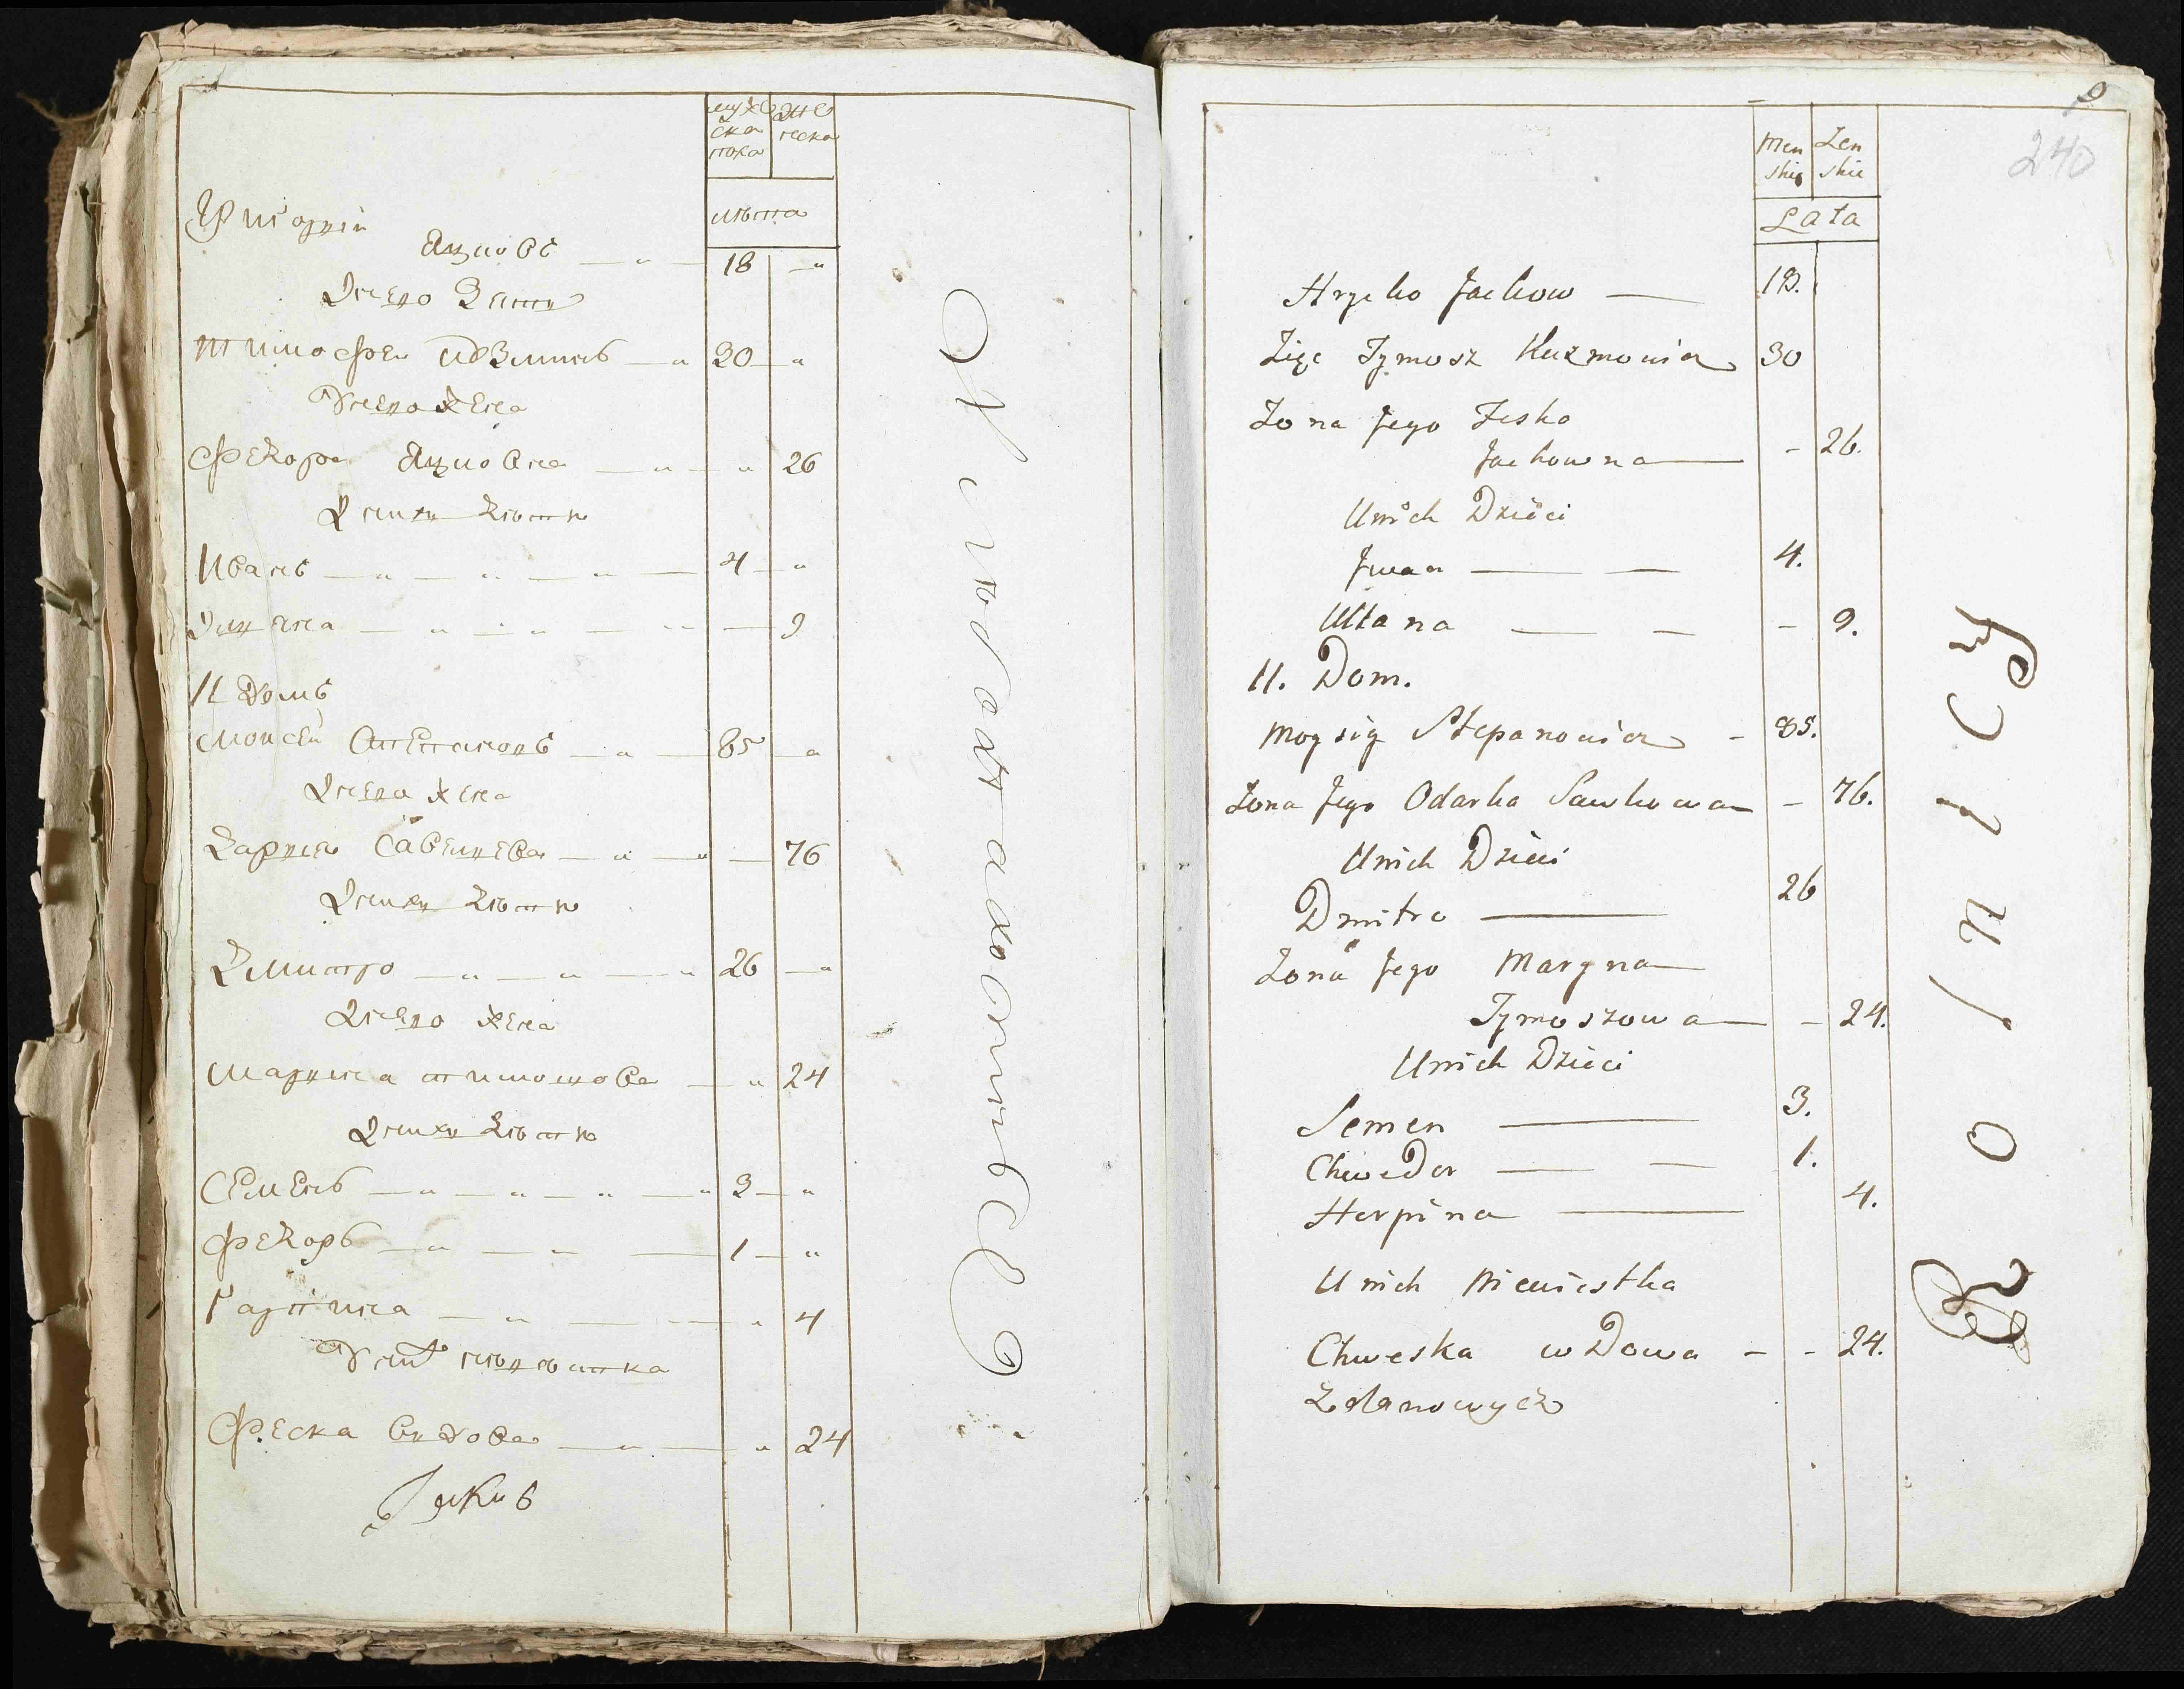 мужеска пола
женска
лѣта
Григорій
Яцковъ 18
У него Зять
Тимофеи 30
У него жена
Федора Яцковна 26
У них дѣти
Иванъ 4
9
11 Домъ
Моисей Степановъ 85
У него жена
Дарья Савельева 76
У них дѣти
Дмитро 26
У него жена
Марина Тимошова 24
У них дѣти
Семенъ 3
Федоръ 1
Гарпина 4
У них невѣстка
Феска вдова 24
9
240
Menskie
Zenskie
Lata
Hryćko Jackow 18.
Zięc Tymosz Kuzmowicz 30
Zona Jego Feska
Jackowna 26.
Unich Dzieci
Jwan 4.
Ulana 9.
11. Dom.
Moysiy Stepanowicz 85.
Zona Jego Odarka Sawkowa 76.
Unich Dzieci
Dmitro 26
Zona Jego Maryna
Tymoszowa 24.
Unich Dzieci
Semen 3.
Chwedor 1.
Horpina 4.
Unich Niewiestka
Chweska wdowa 24.
Rolnicy